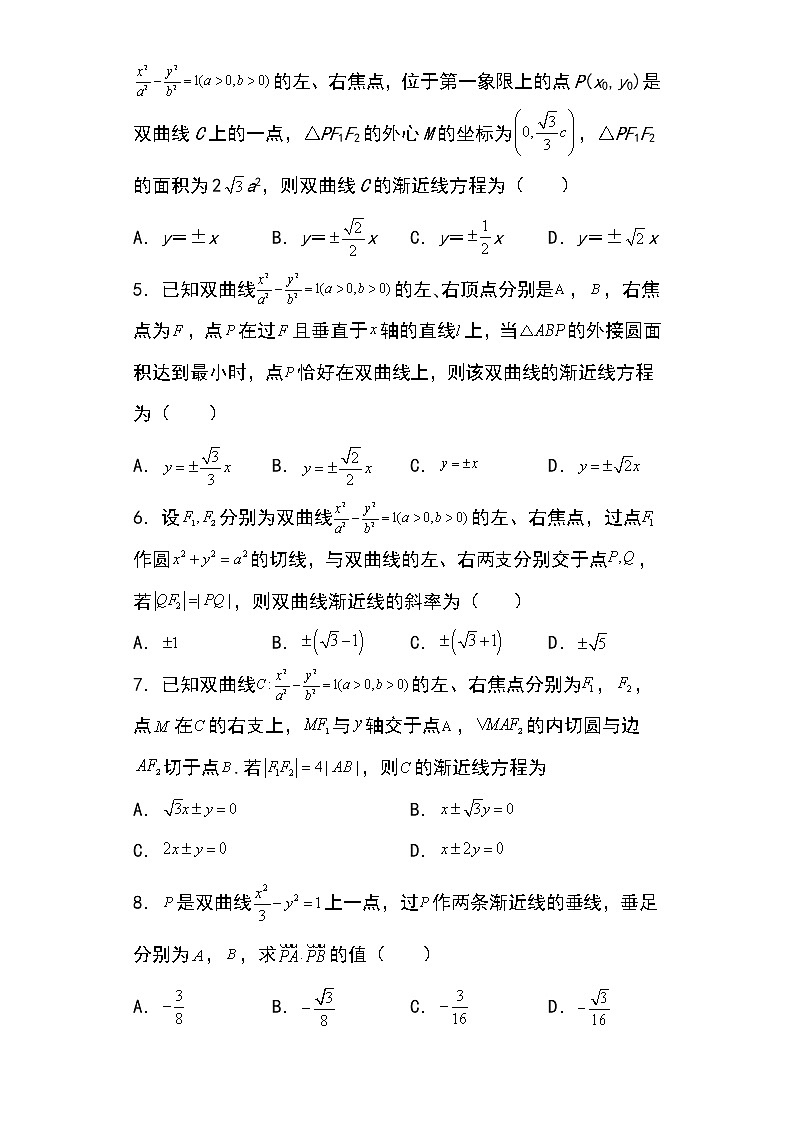 x²/a² - y²/b² =1(a>0,b>0)的左、右焦点，位于第一象限上的点P(x₀,y₀)是
双曲线C上的一点，△PF₁F₂的外心M的坐标为(0, √3/3 c)，△PF₁F₂
的面积为2√3a²，则双曲线C的渐近线方程为（　　）
A. y=±x　B. y=±√2/2 x　C. y=±1/2 x　D. y=±√2x
5. 已知双曲线x²/a² - y²/b² =1(a>0,b>0)的左、右顶点分别是A，B，右焦
点为F，点P在过F且垂直于x轴的直线l上，当△ABP的外接圆面
积达到最小时，点P恰好在双曲线上，则该双曲线的渐近线方程
为（　　）
A. y=±√3/3 x　B. y=±√2/2 x　C. y=±x　D. y=±√2x
6. 设F₁,F₂分别为双曲线x²/a² - y²/b² =1(a>0,b>0)的左、右焦点，过点F₁
作圆x²+y²=a²的切线，与双曲线的左、右两支分别交于点P,Q，
若|QF₂|=|PQ|，则双曲线渐近线的斜率为（　　）
A. ±1　B. ±(√3-1)　C. ±(√3+1)　D. ±√5
7. 已知双曲线C:x²/a² - y²/b² =1(a>0,b>0)的左、右焦点分别为F₁，F₂，
点M在C的右支上，MF₁与y轴交于点A，VMAF₂的内切圆与边
AF₂切于点B.若|F₁F₂|=4|AB|，则C的渐近线方程为
A. √3x±y=0　B. x±√3y=0
C. 2x±y=0　D. x±2y=0
8. P是双曲线x²/3 - y²=1上一点，过P作两条渐近线的垂线，垂足
分别为A，B，求PA·PB的值（　　）
A. -3/8　B. -√3/8　C. -3/16　D. -√3/16